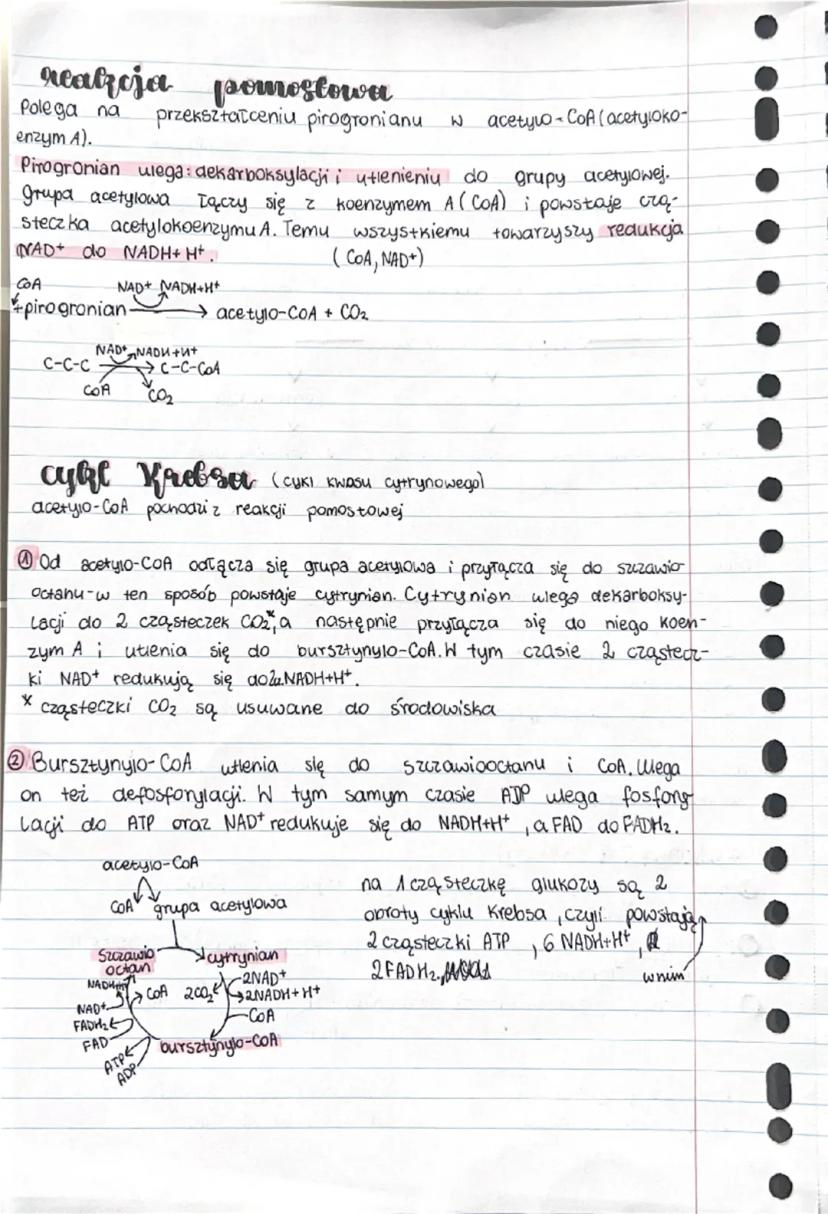 reakcja pomostowa
Polega na przekształceniu pirogronianu w acetylo-CoA (acetyloko-
enzym A).
Pirogronian ulega: dekarboksylacji i utlenieniu do grupy acetylowej.
Grupa acetylowa łączy się z koenzymem A (CoA) i powstaje czą-
steczka acetylokoenzymu A. Temu wszystkiemu towarzyszy redukcja
NAD+ do NADH+H+. (CoA, NAD+)
CoA NAD+ NADH+H+
+pirogronian → acetylo-CoA + CO₂
NAD+ NADH+H+
C-C-C → C-C-CoA
CoA CO₂
cykl Krebsa (cykl kwasu cytrynowego)
acetylo-CoA pochodzi z reakcji pomostowej
① Od acetylo-CoA odłącza się grupa acetylowa i przyłącza się do szczawio
octanu-w ten sposób powstaje cytrynian. Cytrynian ulega dekarboksy-
lacji do 2 cząsteczek CO₂*, a następnie przyłącza się do niego koen-
zym A i utlenia się do bursztynylo-CoA. W tym czasie 2 cząstecz-
ki NAD+ redukują się do 2 NADH+H+.
* cząsteczki CO₂ są usuwane do środowiska
② Bursztynylo-CoA utlenia się do szczawiooctanu i CoA. Ulega
on też defosforylacji. W tym samym czasie ADP ulega fosfory
lacji do ATP oraz NAD+ redukuje się do NADH+H+, a FAD do FADH₂.
acetylo-CoA
CoA grupa acetylowa
szczawio
octan
cytrynian
NADH+H+
NAD+
FADH₂
FAD
ATP
ADP
CoA
2CO₂
2NAD+
2NADH+H+
CoA
bursztynylo-CoA
na 1 cząsteczkę glukozy są 2
obroty cyklu Krebsa, czyli powstają
2 cząsteczki ATP, 6 NADH+H+,
2 FADH₂
w nim